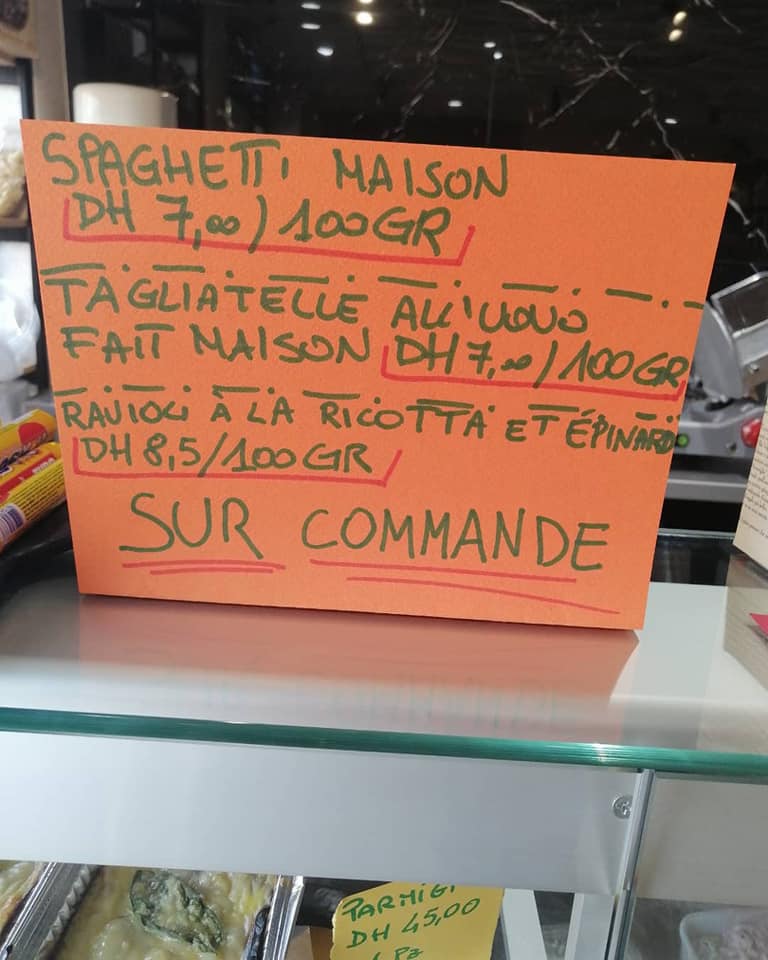 SPAGHETTI MAISON
DH 7,00/100GR
TAGLIATELLE ALL'UOVO
FAIT MAISON DH 7,00/100GR
RAVIOLI À LA RICOTTA ET ÉPINARD
DH 8,5/100GR
SUR COMMANDE
PARMIGI
DH 45,00
PZ